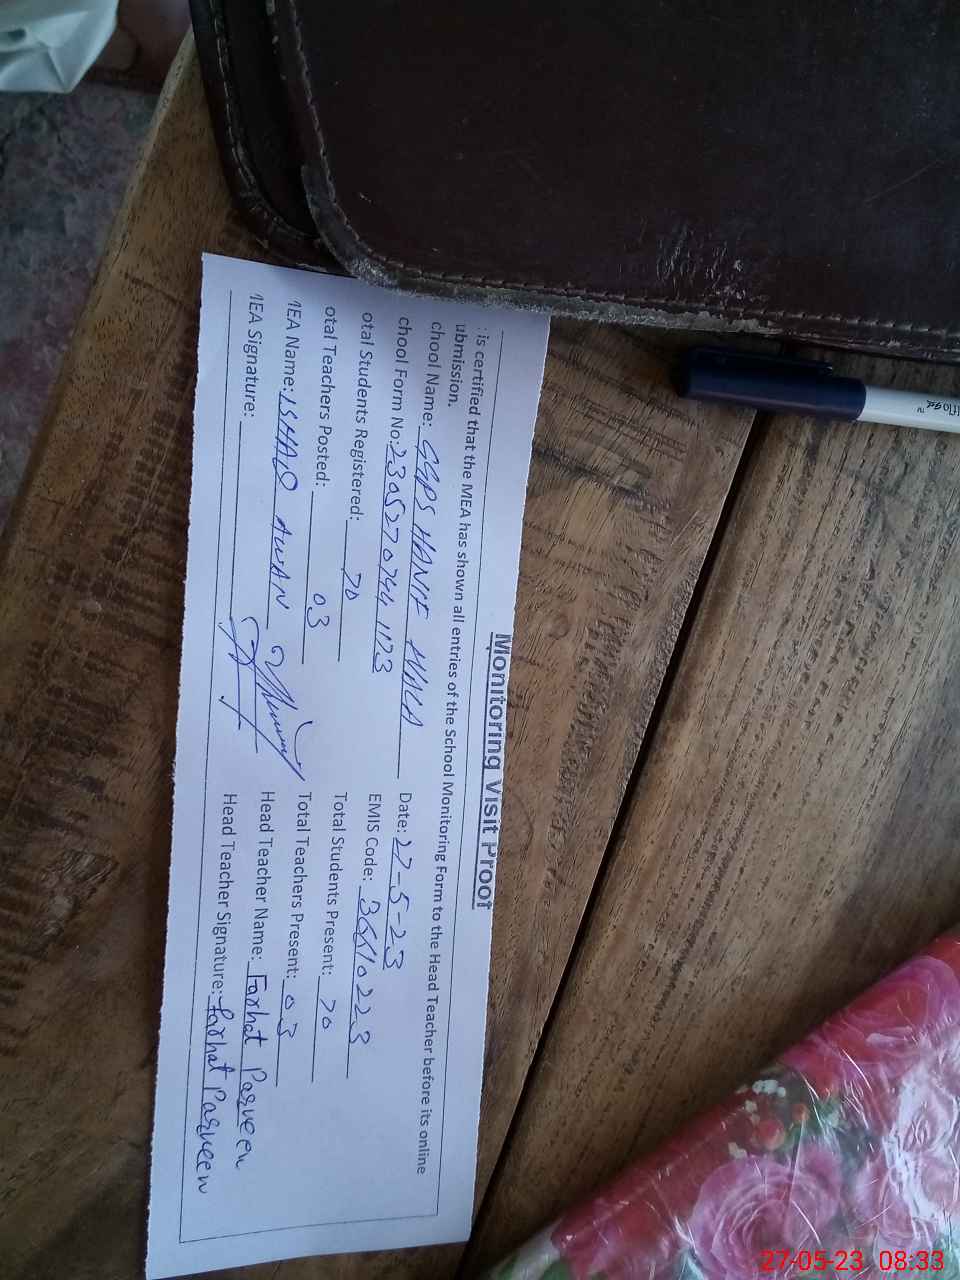 Monitoring Visit Proof
is certified that the MEA has shown all entries of the School Monitoring Form to the Head Teacher before its online
ubmission.
chool Name: GGPS HANIF WALA Date: 27-5-23
chool Form No: EMIS Code: 36610223
otal Students Registered: 70 Total Students Present: 70
otal Teachers Posted: 03 Total Teachers Present: 03
MEA Name: ISHAQ AWAN Head Teacher Name: Farhat Parveen
MEA Signature: Head Teacher Signature: Farhat Parveen
27-05-23 08:33